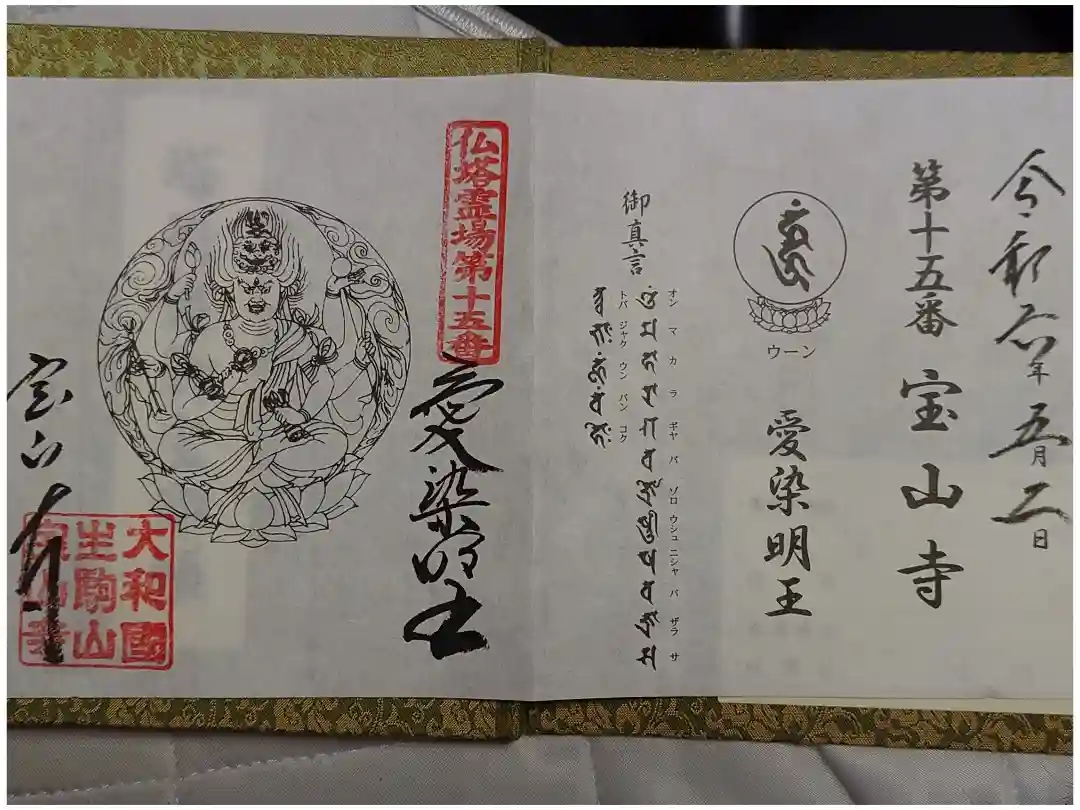 令和元年五月二日
第十五番 宝山寺
ウーン
愛染明王
御真言
オン マ カ ラ ギヤ バ ゾロ ウシュ ニシャ バ ザラ サ
トバ ジャク ウン バン コク
仏塔霊場第十五番
愛染明王
宝山寺
大和國
生駒山
宝山寺